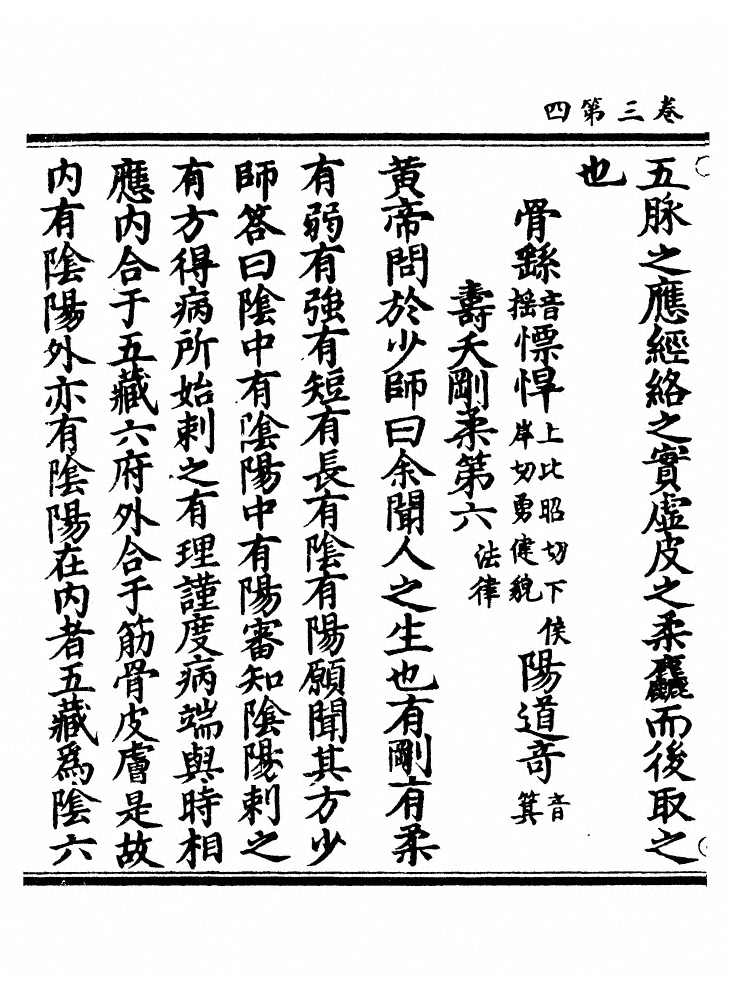 卷三第四
五脉之應經絡之實虛皮之柔麤而後取之
也
骨繇音摇慓悍上比昭切下侯岸切勇健貌陽道竒音箕
壽夭剛柔第六法律
黄帝問於少師曰余聞人之生也有剛有柔
有弱有強有短有長有陰有陽願聞其方少
師答曰陰中有陰陽中有陽審知陰陽刺之
有方得病所始刺之有理謹度病端與時相
應内合于五藏六府外合于筋骨皮膚是故
内有陰陽外亦有陰陽在内者五藏爲陰六